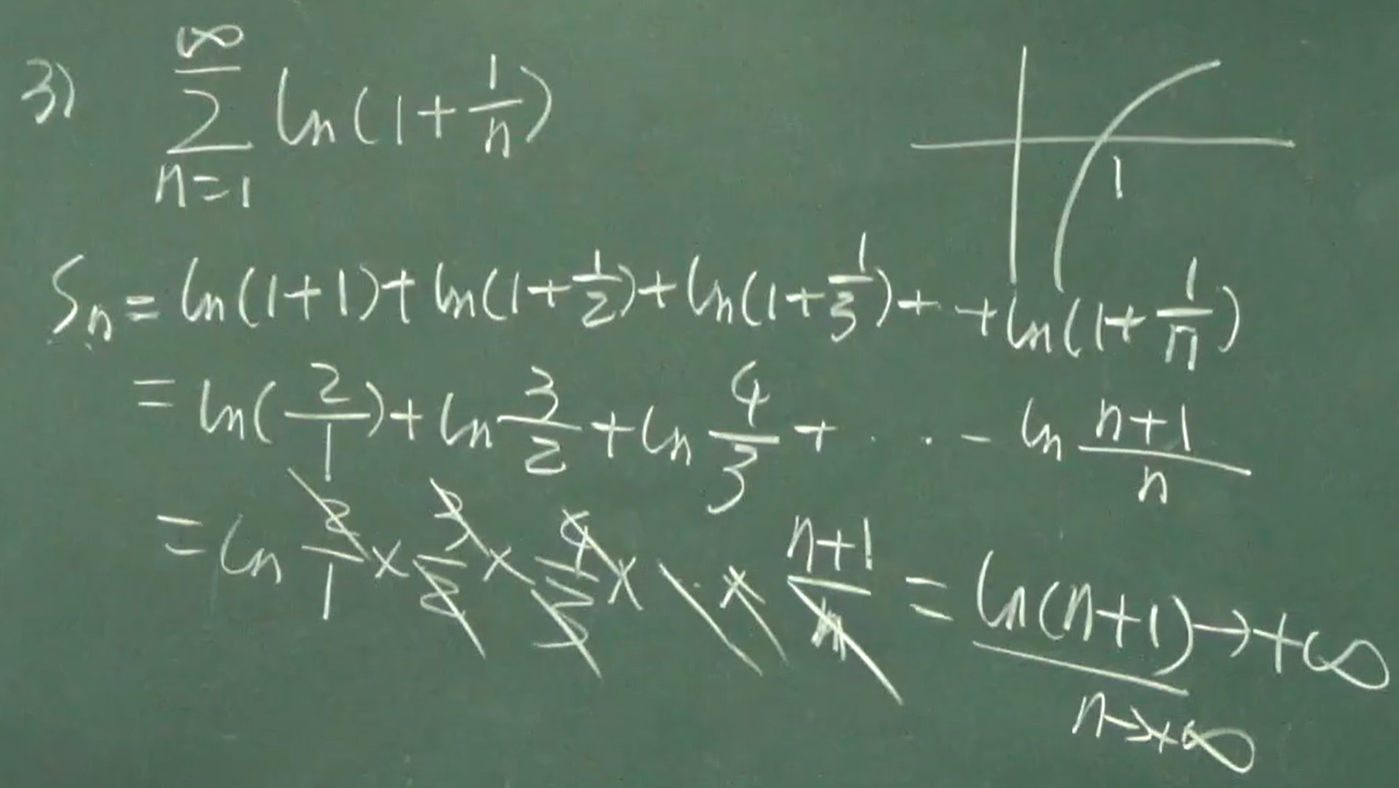 3) ∞
∑ ln(1+1/n)
n=1
1
Sn = ln(1+1)+ln(1+1/2)+ln(1+1/3)+ +ln(1+1/n)
= ln(2/1)+ln 3/2+ln 4/3+ . . - ln n+1/n
= ln 2/1×3/2×4/3× · × n+1/n = ln(n+1)→+∞
n→+∞